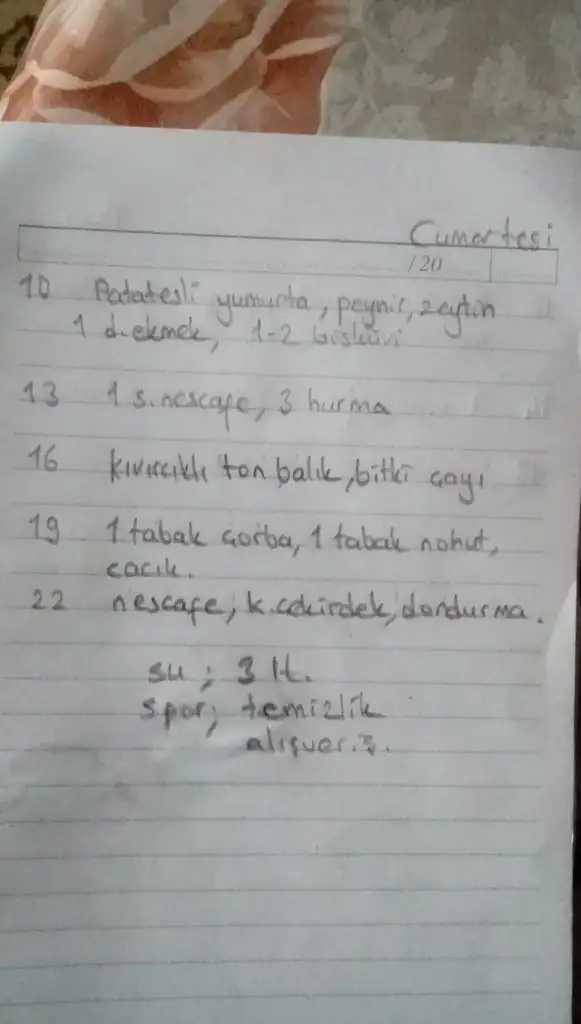 Cumartesi
/20
10 Patatesli yumurta, peynir, zeytin
1 d.ekmek, 1-2 bisküvi
13 1 s.nescafe, 3 hurma
16 kıvırcıklı ton balık, bitki çayı
19 1 tabak çorba, 1 tabak nohut,
cacık.
22 nescafe, k.çekirdek, dondurma.
su; 3 lt.
spor; temizlik
alışveriş.